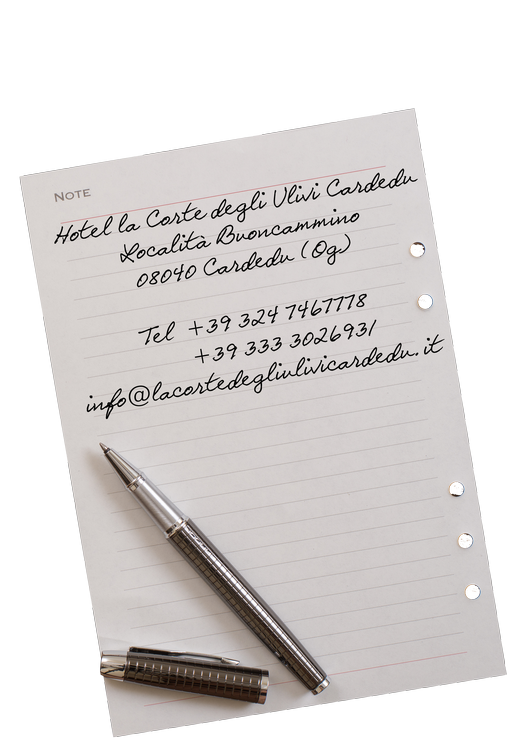 NOTE
Hotel la Corte degli Ulivi Cardedu
Località Buoncammino
08040 Cardedu (Og)
Tel +39 324 7467778
+39 333 3026931
info@lacortedegliulivicardedu.it